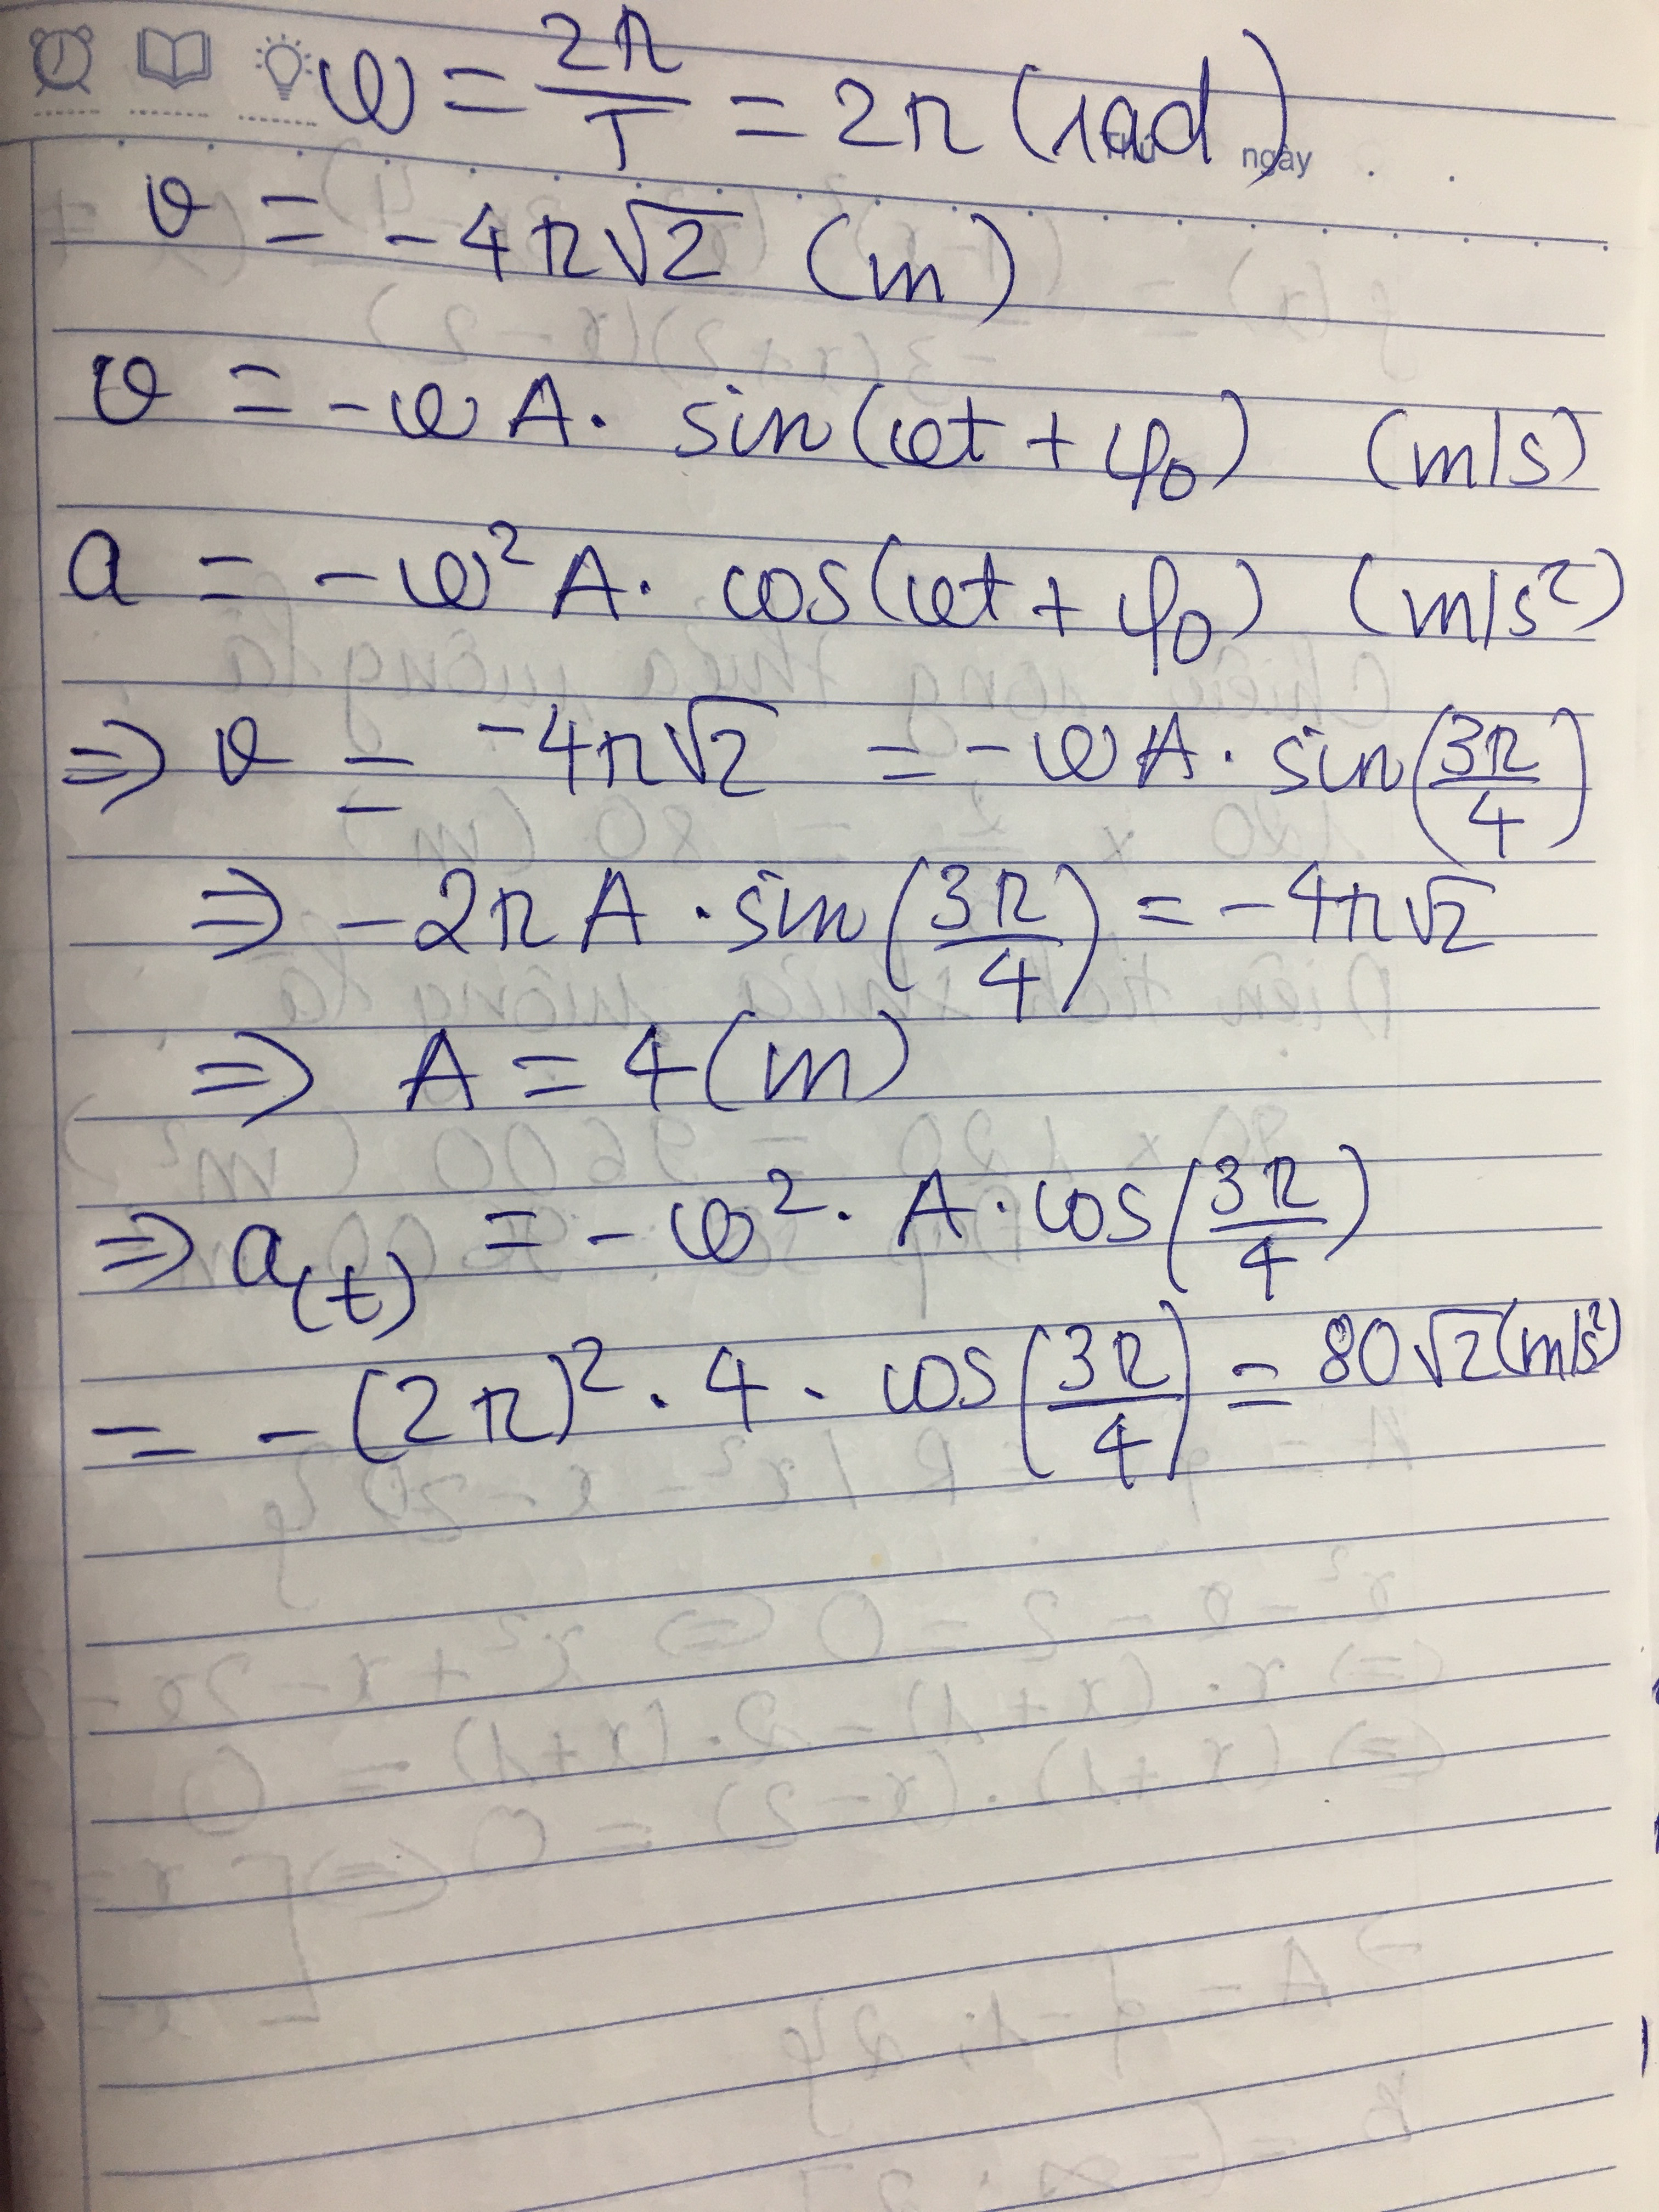 ω = 2π/T = 2π (rad)
ngày
v = -4π√2 (m)
v = -ωA. sin(ωt + φ₀) (m/s)
a = -ω²A. cos(ωt + φ₀) (m/s²)
⇒ v = -4π√2 = -ωA. sin(3π/4)
⇒ -2πA . sin(3π/4) = -4π√2
⇒ A = 4 (m)
⇒ a(t) = -ω². A. cos(3π/4)
= -(2π)². 4. cos(3π/4) = 80√2 (m/s²)